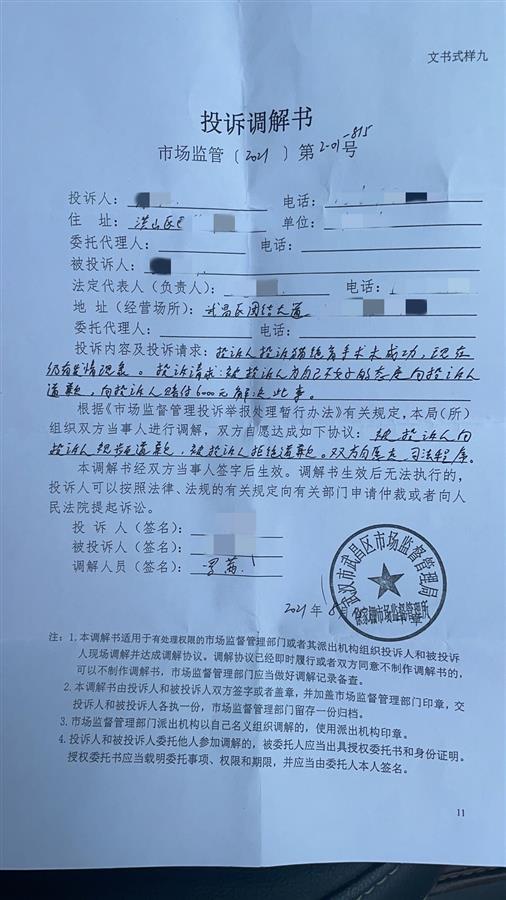 文书式样九
投诉调解书
市场监管〔2021〕第2-01-815号
投诉人： 电话：
住 址：洪山区 单位：
委托代理人： 电话：
被投诉人：
法定代表人（负责人）： 电话：
地 址（经营场所）：武昌区团结大道
委托代理人： 电话：
投诉内容及投诉请求：投诉人投诉猫绝育手术未成功，现在
仍有发情现象。投诉请求：被投诉人为自己不友好的态度向投诉人
道歉，向投诉人赔付6000元解决此事。
根据《市场监督管理投诉举报处理暂行办法》有关规定，本局（所）
组织双方当事人进行调解，双方自愿达成如下协议：被投诉人向
投诉人 道歉，被投诉人拒绝道歉。双方同愿走司法程序。
本调解书经双方当事人签字后生效。调解书生效后无法执行的，
投诉人可以按照法律、法规的有关规定向有关部门申请仲裁或者向人
民法院提起诉讼。
投 诉 人（签名）：
被投诉人（签名）：
调解人员（签名）：
武汉市武昌区市场监督管理局
徐家棚市场监督管理所
2021年8月
注：1.本调解书适用于有处理权限的市场监督管理部门或者其派出机构组织投诉人和被投诉
人现场调解并达成调解协议。调解协议已经即时履行或者双方同意不制作调解书的，
可以不制作调解书，市场监管部门应当做好调解记录备查。
2.本调解书由投诉人和被投诉人双方签字或者盖章，并加盖市场监督管理部门印章，交
投诉人和被投诉人各执一份，市场监督管理部门留存一份归档。
3.市场监督管理部门派出机构以自己名义组织调解的，使用派出机构印章。
4.投诉人和被投诉人委托他人参加调解的，被委托人应当出具授权委托书和身份证明。
授权委托书应当载明委托事项、权限和期限，并应当由委托人本人签名。
11